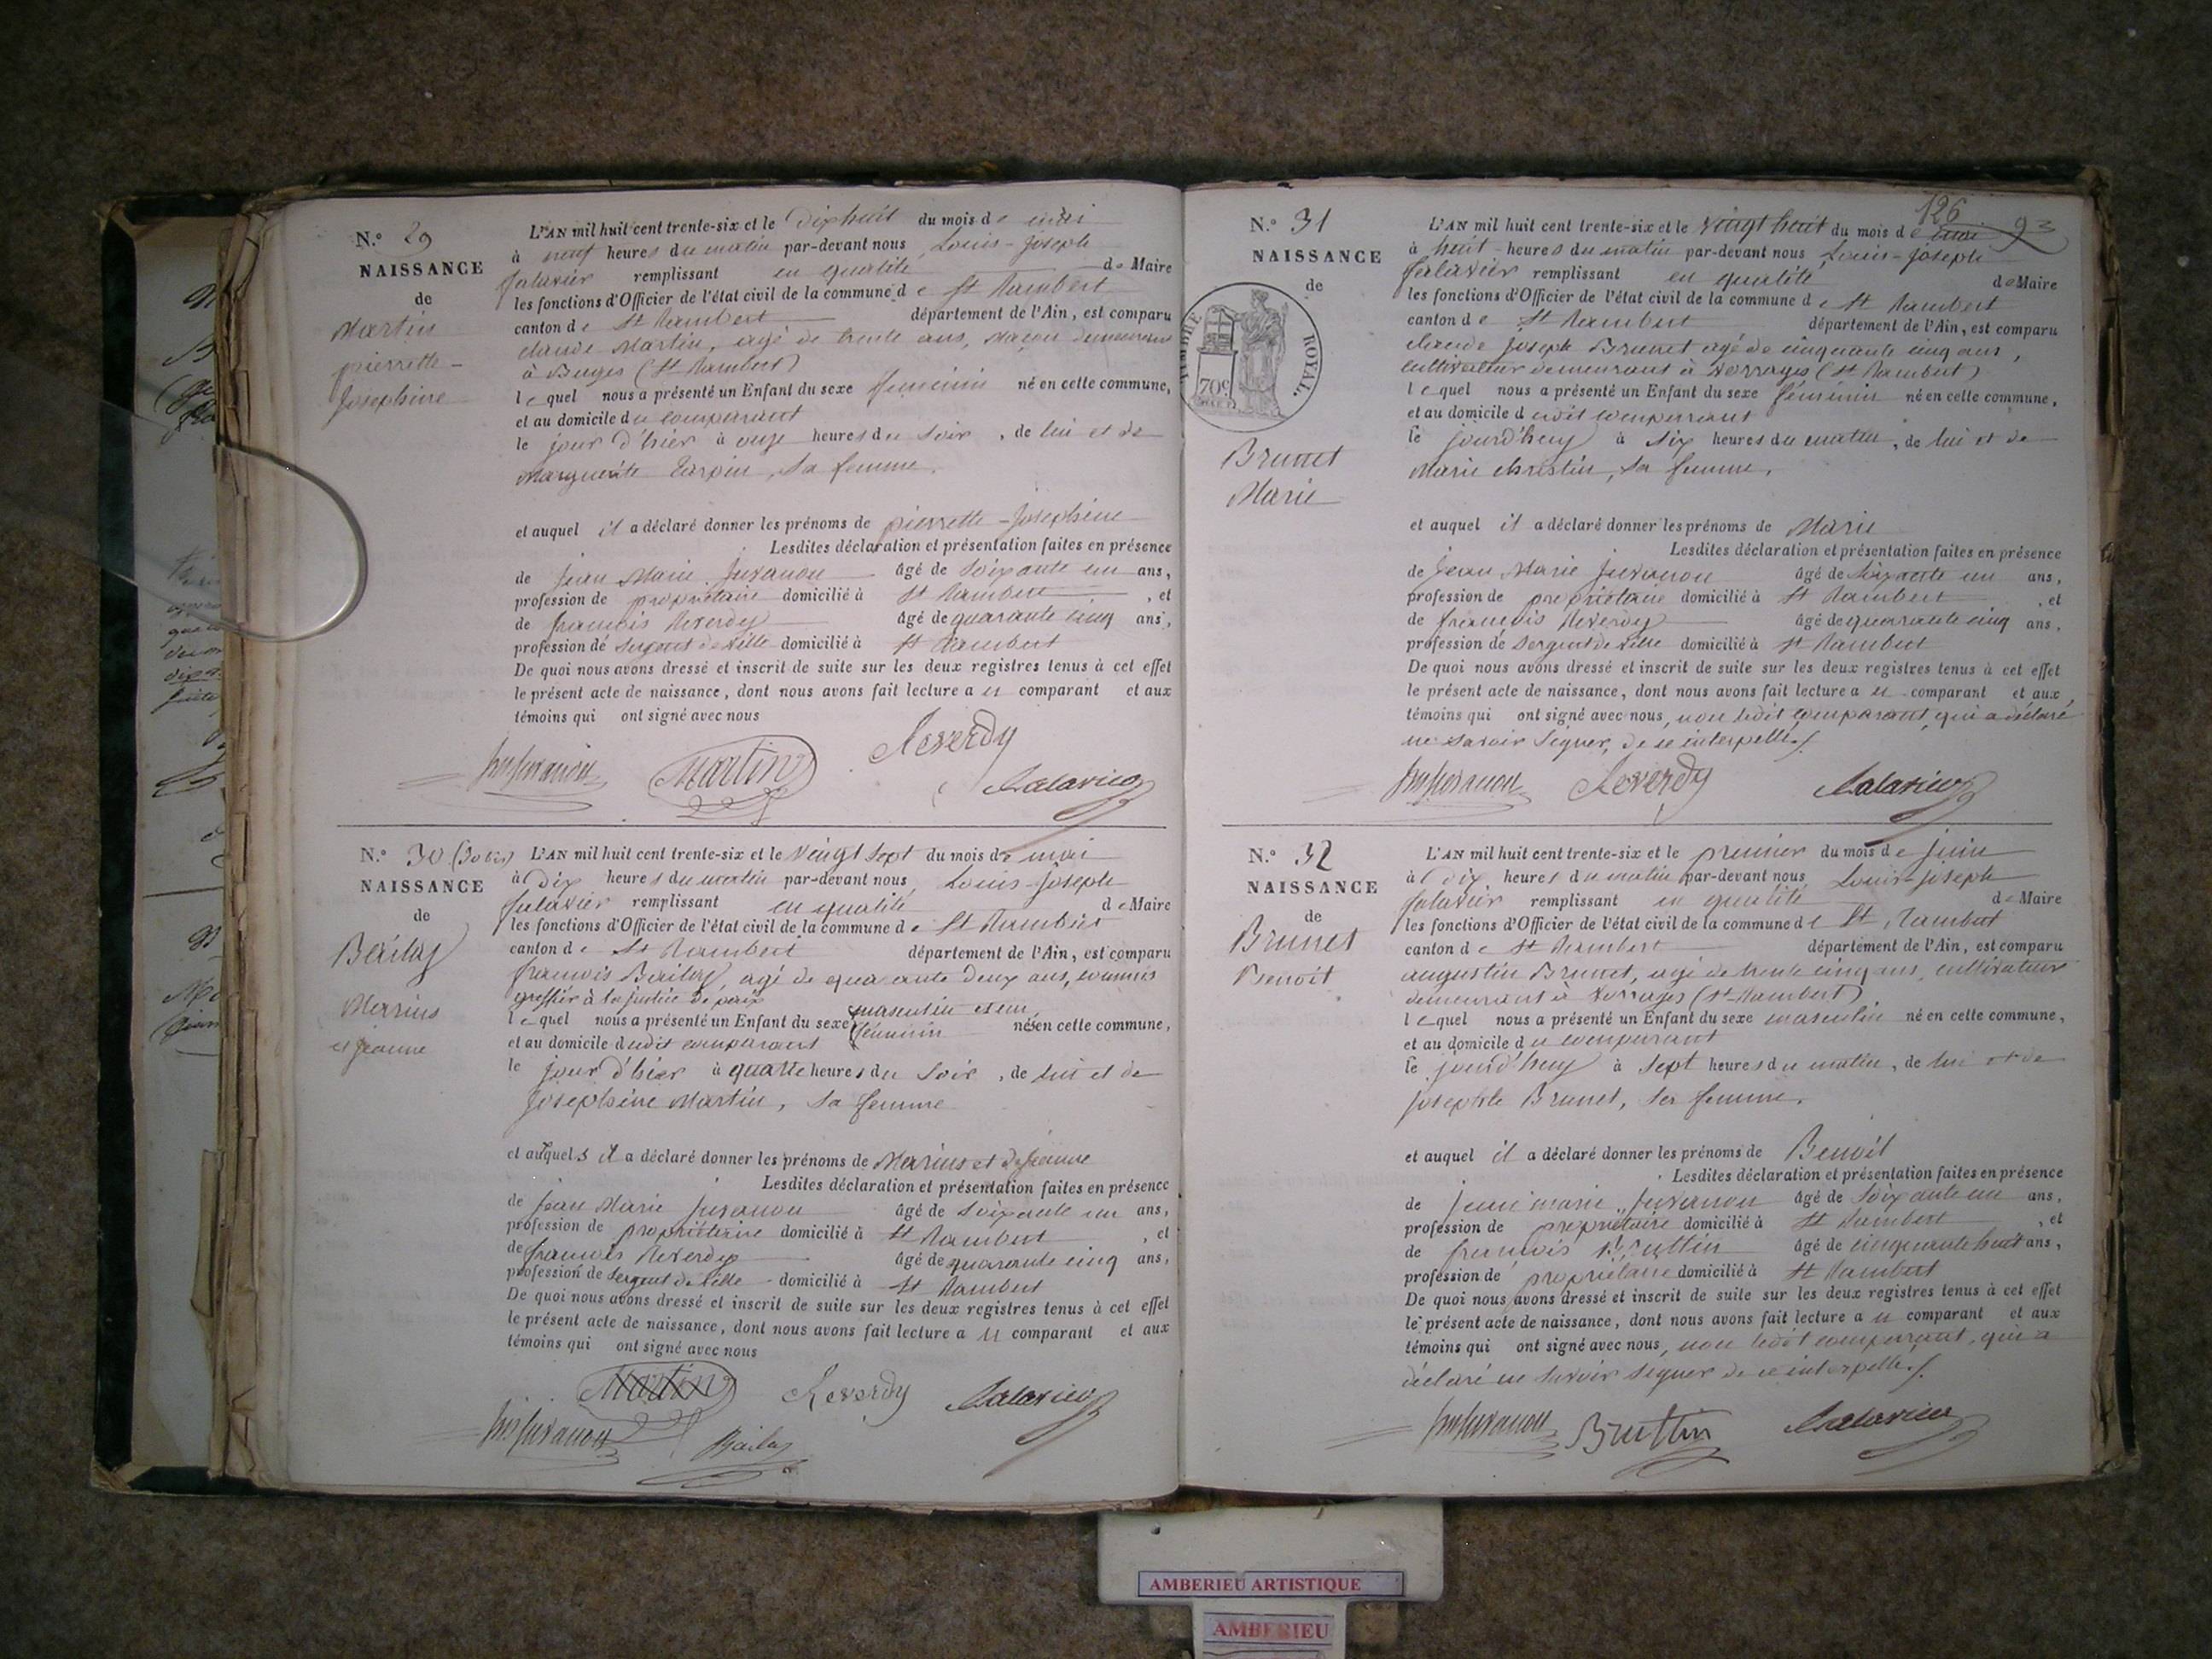 N.° 29
NAISSANCE
de
Martin
pierrette-
Josephine
L'AN mil huit cent trente-six et le Dixhuit du mois de mai
à neuf heures du matin par-devant nous, Louis-Joseph
falavier remplissant en qualité de Maire
les fonctions d'Officier de l'état civil de la commune de St Rambert
canton de St Rambert département de l'Ain, est comparu
claude Martin, agé de trente ans, maçon demeurant
à Buges (St Rambert)
lequel nous a présenté un Enfant du sexe féminin né en cette commune,
et au domicile du comparant
le jour d'hier à onze heures du soir, de lui et de
Marguerite Tarpin, sa femme.
et auquel il a déclaré donner les prénoms de pierrette-Josephine
Lesdites déclaration et présentation faites en présence
de Jean Marie Juvanon âgé de soixante un ans,
profession de propriétaire domicilié à St Rambert, et
de françois Reverdy âgé de quarante cinq ans,
profession de sergent de ville domicilié à St Rambert
De quoi nous avons dressé et inscrit de suite sur les deux registres tenus à cet effet
le présent acte de naissance, dont nous avons fait lecture au comparant et aux
témoins qui ont signé avec nous
Juvanon Martin Reverdy falavier
N.° 30 (30 bis)
NAISSANCE
de
Bailly
Marius
et jeanne
L'AN mil huit cent trente-six et le Vingt sept du mois de mai
à Dix heures du matin par-devant nous, Louis-Joseph
falavier remplissant en qualité de Maire
les fonctions d'Officier de l'état civil de la commune de St Rambert
canton de St Rambert département de l'Ain, est comparu
françois Bailly, agé de quarante deux ans, commis
greffier à la justice de paix
masculin et un
lequel nous a présenté un Enfant du sexe féminin nés en cette commune,
et au domicile dudit comparant
le jour d'hier à quatre heures du soir, de lui et de
Josephine Martin, sa femme
et auquels il a déclaré donner les prénoms de Marius et de jeanne
Lesdites déclaration et présentation faites en présence
de Jean Marie Juvanon âgé de soixante un ans,
profession de propriétaire domicilié à St Rambert, et
de françois Reverdy âgé de quarante cinq ans,
profession de sergent de ville domicilié à St Rambert
De quoi nous avons dressé et inscrit de suite sur les deux registres tenus à cet effet
le présent acte de naissance, dont nous avons fait lecture au comparant et aux
témoins qui ont signé avec nous
Martin Reverdy falavier
Juvanon Bailly
126
93
N.° 31
NAISSANCE
de
TIMBRE ROYAL.
70c
Brunet
Marie
L'AN mil huit cent trente-six et le Vingt huit du mois de mai
à huit heures du matin par-devant nous, Louis-Joseph
falavier remplissant en qualité de Maire
les fonctions d'Officier de l'état civil de la commune de St Rambert
canton de St Rambert département de l'Ain, est comparu
claude Joseph Brunet agé de cinquante cinq ans,
cultivateur demeurant à Vorrages (St Rambert)
lequel nous a présenté un Enfant du sexe féminin né en cette commune,
et au domicile dudit comparant
le jourd'huy à six heures du matin, de lui et de
Marie christin, sa femme.
et auquel il a déclaré donner les prénoms de Marie
Lesdites déclaration et présentation faites en présence
de Jean Marie Juvanon âgé de soixante un ans,
profession de propriétaire domicilié à St Rambert, et
de françois Reverdy âgé de quarante cinq ans,
profession de sergent de ville domicilié à St Rambert
De quoi nous avons dressé et inscrit de suite sur les deux registres tenus à cet effet
le présent acte de naissance, dont nous avons fait lecture au comparant et aux
témoins qui ont signé avec nous, non ledit comparant, qui a déclaré
ne savoir signer, de ce interpellé./.
Juvanon Reverdy falavier
N.° 32
NAISSANCE
de
Brunet
Benoit
L'AN mil huit cent trente-six et le premier du mois de juin
à Dix heures du matin par-devant nous Louis-Joseph
falavier remplissant en qualité de Maire
les fonctions d'Officier de l'état civil de la commune de St Rambert
canton de St Rambert département de l'Ain, est comparu
augustin Brunet, agé de trente cinq ans, cultivateur
demeurant à Vorrages (St-Rambert)
lequel nous a présenté un Enfant du sexe masculin né en cette commune,
et au domicile du comparant
le jourd'huy à sept heures du matin, de lui et de
Josephte Brunet, sa femme.
et auquel il a déclaré donner les prénoms de Benoit
Lesdites déclaration et présentation faites en présence
de Jean marie Juvanon âgé de soixante un ans,
profession de propriétaire domicilié à St Rambert, et
de françois Bruttin âgé de cinquante huit ans,
profession de propriétaire domicilié à St Rambert
De quoi nous avons dressé et inscrit de suite sur les deux registres tenus à cet effet
le présent acte de naissance, dont nous avons fait lecture au comparant et aux
témoins qui ont signé avec nous, non ledit comparant, qui a
déclaré ne savoir signer de ce interpellé./.
Juvanon Bruttin falavier
AMBERIEU ARTISTIQUE
AMBERIEU